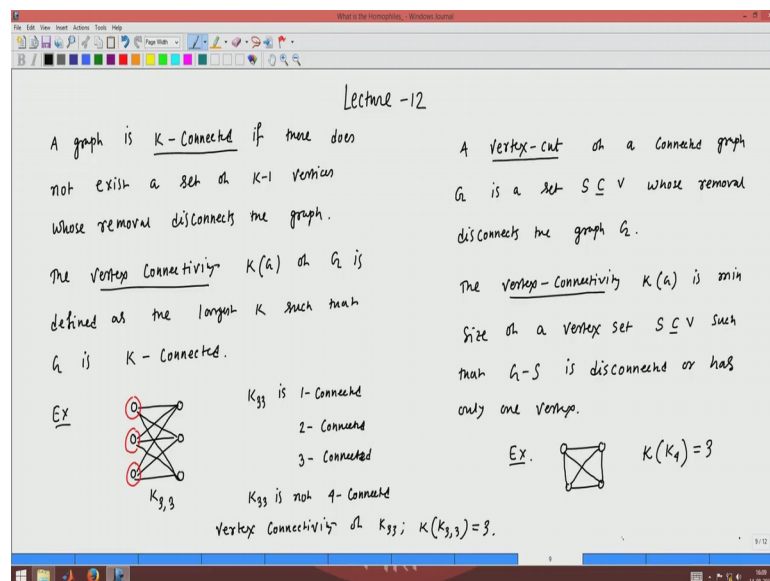 What is the Homophiles_ - Windows Journal
File Edit View Insert Actions Tools Help
Page Width
B I
Lecture -12
A graph is K-Connected if there does
not exist a set of K-1 vertices
whose removal disconnects the graph.
The vertex Connectivity K(G) of G is
defined as the longest K such that
G is K - Connected.
Ex
K3,3
K33 is 1- Connected
2- Connected
3- Connected
K33 is not 4- Connected
vertex Connectivity of K33; K(K3,3)=3.
A vertex-cut of a Connected graph
G is a set S ⊆ V whose removal
disconnects the graph G.
The vertex-Connectivity K(G) is min
Size of a vertex set S ⊆ V such
that G-S is disconnected or has
only one vertex.
Ex. K(K4)=3
9/12
9
16:09